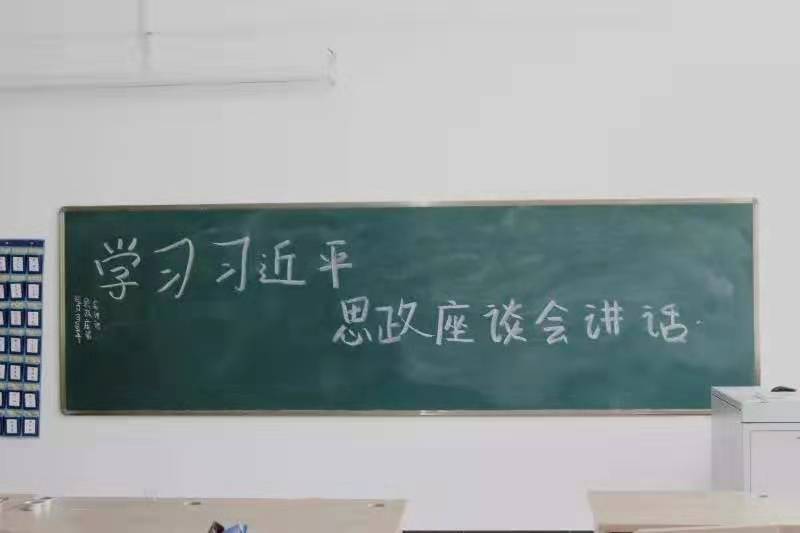 学习习近平
思政座谈会讲话